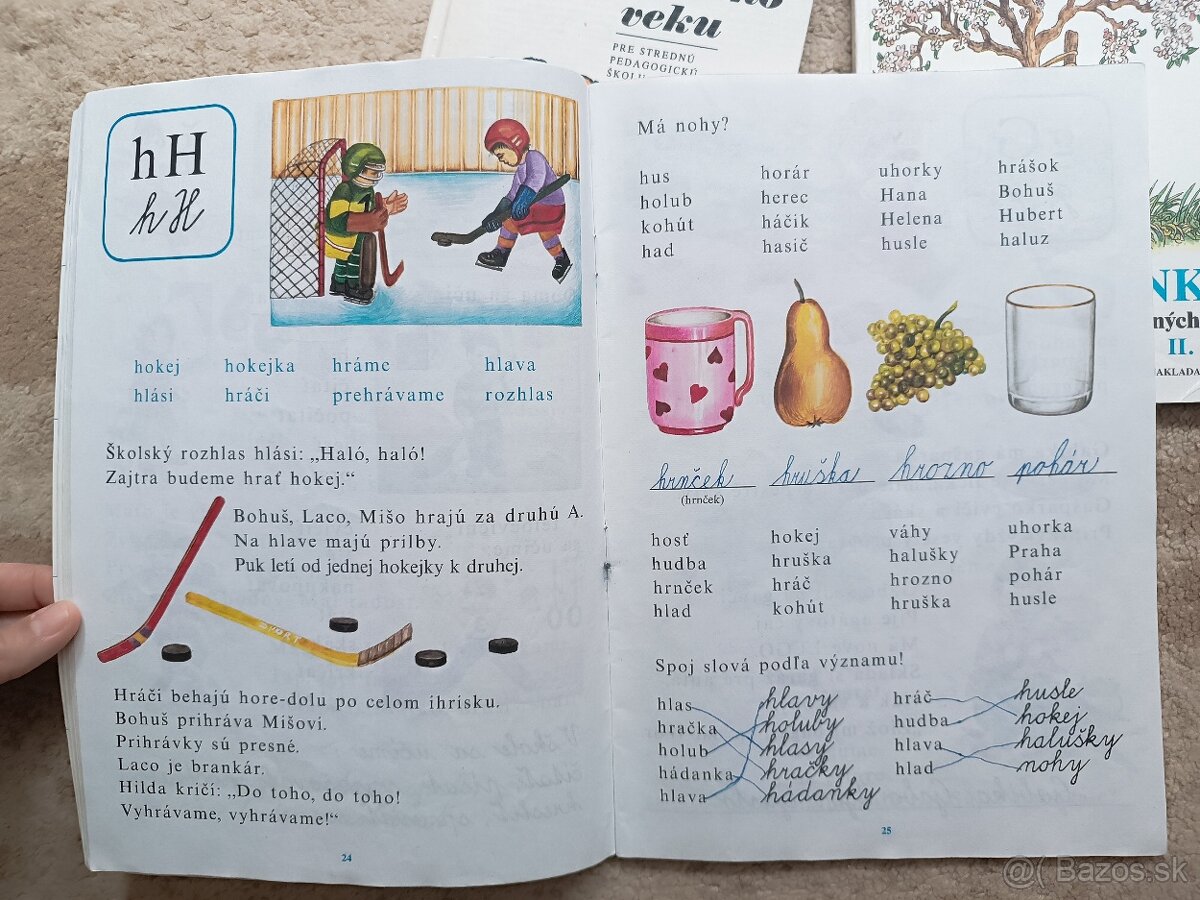 veku
PRE STREDNÚ
PEDAGOGICKÚ
ŠKOLU
ných
II.
h H
h H
hokej hokejka hráme hlava
hlási hráči prehrávame rozhlas
Školský rozhlas hlási: „Haló, haló!
Zajtra budeme hrať hokej.“
Bohuš, Laco, Mišo hrajú za druhú A.
Na hlave majú prilby.
Puk letí od jednej hokejky k druhej.
SPORT
Hráči behajú hore-dolu po celom ihrisku.
Bohuš prihráva Mišovi.
Prihrávky sú presné.
Laco je brankár.
Hilda kričí: „Do toho, do toho!
Vyhrávame, vyhrávame!“
24
Má nohy?
hus horár uhorky hrášok
holub herec Hana Bohuš
kohút háčik Helena Hubert
had hasič husle haluz
hrnček hruška hrozno pohár
(hrnček)
hosť hokej váhy uhorka
hudba hruška halušky Praha
hrnček hráč hrozno pohár
hlad kohút hruška husle
Spoj slová podľa významu!
hlas hlavy hráč husle
hračka holuby hudba hokej
holub hlasy hlava halušky
hádanka hračky hlad nohy
hlava hádanky
25
@( Bazos.sk